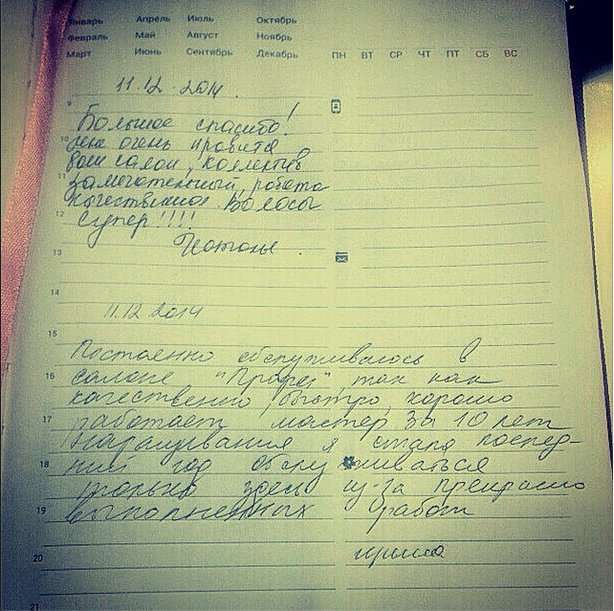 Январь Апрель Июль Октябрь
Февраль Май Август Ноябрь
Март Июнь Сентябрь Декабрь
ПН ВТ СР ЧТ ПТ СБ ВС
11.12.2014.
9
Большое спасибо!
10
мне очень нравится
ваш салон, коллектив
11
замечательный, работа
качественная. Волосы
12
супер!!!!
Татьяна.
13
14
11.12.2014
15
Постоянно обслуживаюсь в
16
салоне "Профи", так как
качественно, быстро, хорошо
17
работает мастер, за 10 лет
наращивания я стала послед-
18
ний год обслуживаться
только здесь из-за прекрасно
19
выполненных работ
Ирина
20
21